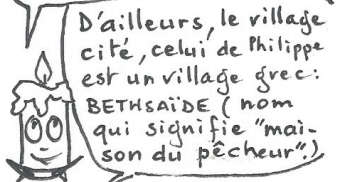 D'ailleurs, le village
cité, celui de Philippe
est un village grec:
BETHSAÏDE (nom
qui signifie "mai-
son du pêcheur".)